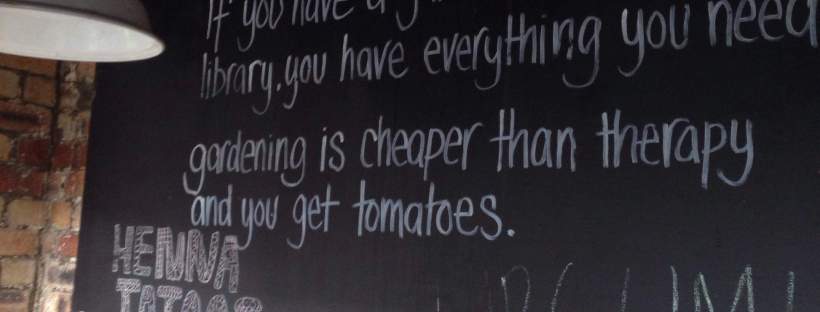 If you have a
library. you have everything you need
gardening is cheaper than therapy
and you get tomatoes.
HENNA